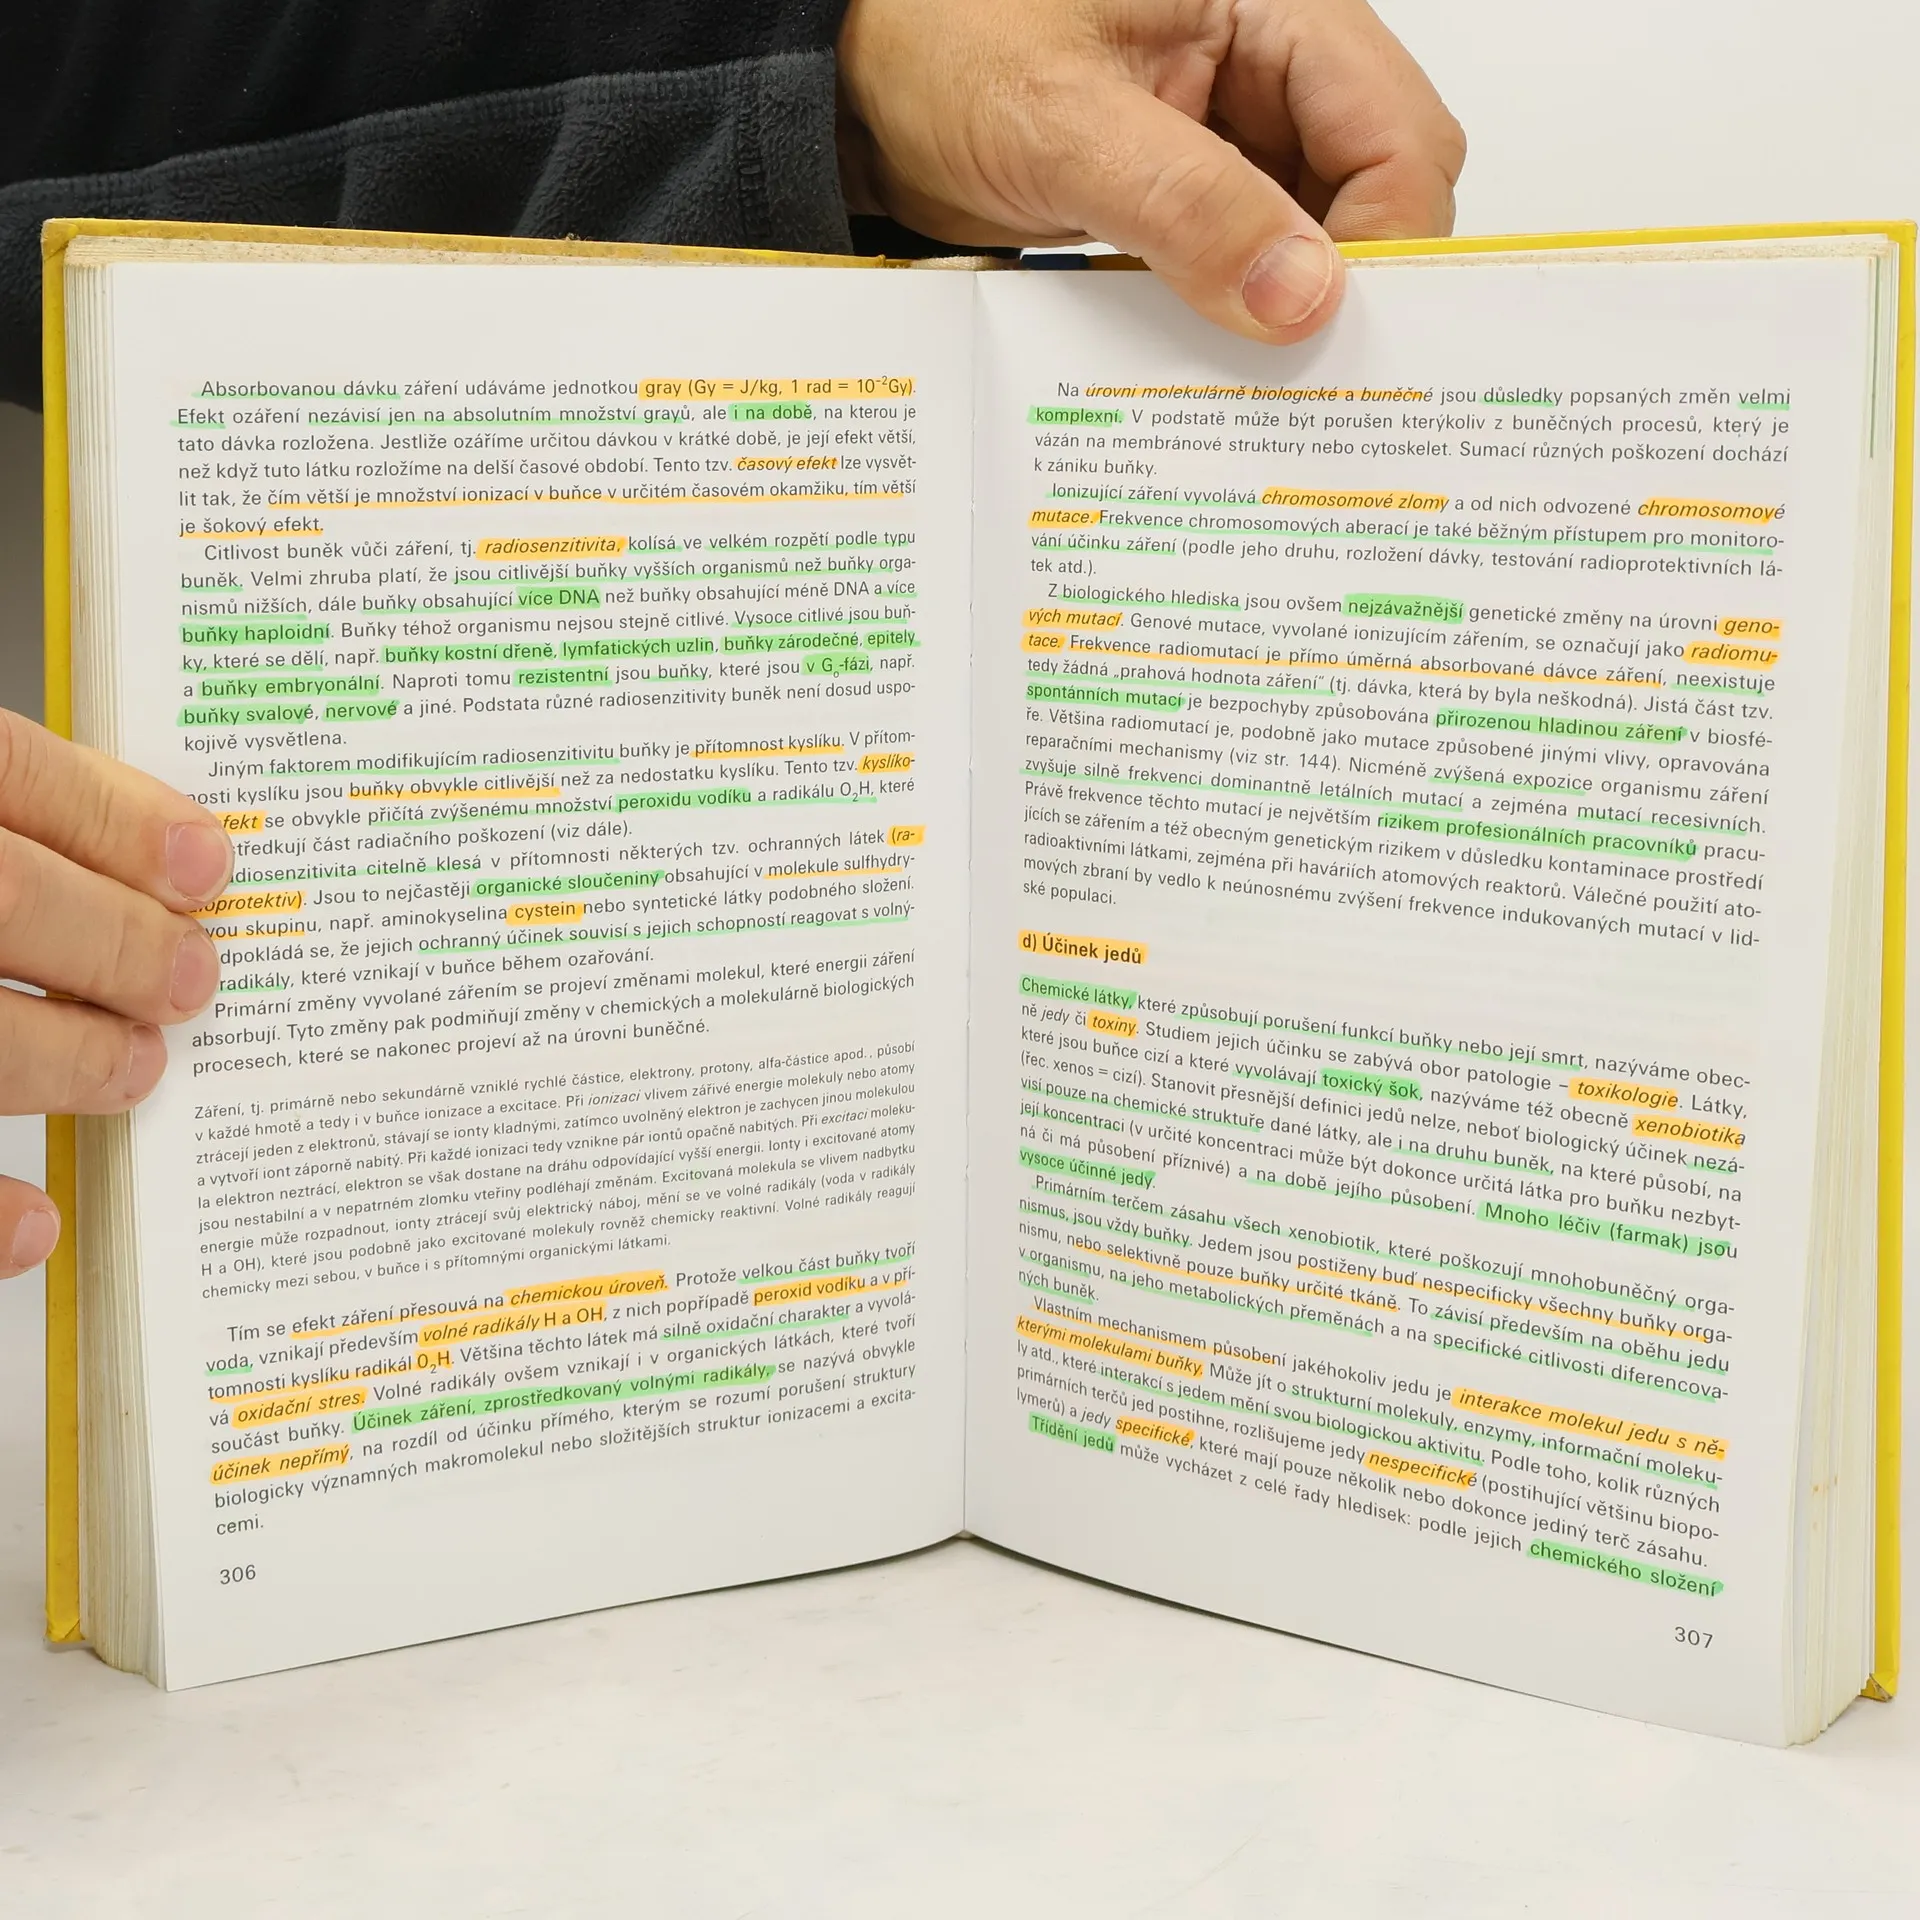 Absorbovanou dávku záření udáváme jednotkou gray (Gy = J/kg, 1 rad = 10⁻²Gy).
Efekt ozáření nezávisí jen na absolutním množství grayů, ale i na době, na kterou je
tato dávka rozložena. Jestliže ozáříme určitou dávkou v krátké době, je její efekt větší,
než když tuto látku rozložíme na delší časové období. Tento tzv. časový efekt lze vysvět-
lit tak, že čím větší je množství ionizací v buňce v určitém časovém okamžiku, tím větší
je šokový efekt.
Citlivost buněk vůči záření, tj. radiosenzitivita, kolísá ve velkém rozpětí podle typu
buněk. Velmi zhruba platí, že jsou citlivější buňky vyšších organismů než buňky orga-
nismů nižších, dále buňky obsahující více DNA než buňky obsahující méně DNA a více
buňky haploidní. Buňky téhož organismu nejsou stejně citlivé. Vysoce citlivé jsou buň-
ky, které se dělí, např. buňky kostní dřeně, lymfatických uzlin, buňky zárodečné, epitely
a buňky embryonální. Naproti tomu rezistentní jsou buňky, které jsou v G₀-fázi, např.
buňky svalové, nervové a jiné. Podstata různé radiosenzitivity buněk není dosud uspo-
kojivě vysvětlena.
Jiným faktorem modifikujícím radiosenzitivitu buňky je přítomnost kyslíku. V přítom-
nosti kyslíku jsou buňky obvykle citlivější než za nedostatku kyslíku. Tento tzv. kyslíko-
fekt se obvykle přičítá zvýšenému množství peroxidu vodíku a radikálu O₂H, které
tředkují část radiačního poškození (viz dále).
diosenzitivita citelně klesá v přítomnosti některých tzv. ochranných látek (ra-
oprotektiv). Jsou to nejčastěji organické sloučeniny obsahující v molekule sulfhydry-
vou skupinu, např. aminokyselina cystein nebo syntetické látky podobného složení.
dpokládá se, že jejich ochranný účinek souvisí s jejich schopností reagovat s volný-
radikály, které vznikají v buňce během ozařování.
Primární změny vyvolané zářením se projeví změnami molekul, které energii záření
absorbují. Tyto změny pak podmiňují změny v chemických a molekulárně biologických
procesech, které se nakonec projeví až na úrovni buněčné.
Záření, tj. primárně nebo sekundárně vzniklé rychlé částice, elektrony, protony, alfa-částice apod., působí
v každé hmotě a tedy i v buňce ionizace a excitace. Při ionizaci vlivem zářivé energie molekuly nebo atomy
ztrácejí jeden z elektronů, stávají se ionty kladnými, zatímco uvolněný elektron je zachycen jinou molekulou
a vytvoří iont záporně nabitý. Při každé ionizaci tedy vznikne pár iontů opačně nabitých. Při excitaci moleku-
la elektron neztrácí, elektron se však dostane na dráhu odpovídající vyšší energii. Ionty i excitované atomy
jsou nestabilní a v nepatrném zlomku vteřiny podléhají změnám. Excitovaná molekula se vlivem nadbytku
energie může rozpadnout, ionty ztrácejí svůj elektrický náboj, mění se ve volné radikály (voda v radikály
H a OH), které jsou podobně jako excitované molekuly rovněž chemicky reaktivní. Volné radikály reagují
chemicky mezi sebou, v buňce i s přítomnými organickými látkami.
Tím se efekt záření přesouvá na chemickou úroveň. Protože velkou část buňky tvoří
voda, vznikají především volné radikály H a OH, z nich popřípadě peroxid vodíku a v pří-
tomnosti kyslíku radikál O₂H. Většina těchto látek má silně oxidační charakter a vyvolá-
vá oxidační stres. Volné radikály ovšem vznikají i v organických látkách, které tvoří
součást buňky. Účinek záření, zprostředkovaný volnými radikály, se nazývá obvykle
účinek nepřímý, na rozdíl od účinku přímého, kterým se rozumí porušení struktury
biologicky významných makromolekul nebo složitějších struktur ionizacemi a excita-
cemi.
306
Na úrovni molekulárně biologické a buněčné jsou důsledky popsaných změn velmi
komplexní. V podstatě může být porušen kterýkoliv z buněčných procesů, který je
vázán na membránové struktury nebo cytoskelet. Sumací různých poškození dochází
k zániku buňky.
Ionizující záření vyvolává chromosomové zlomy a od nich odvozené chromosomové
mutace. Frekvence chromosomových aberací je také běžným přístupem pro monitoro-
vání účinku záření (podle jeho druhu, rozložení dávky, testování radioprotektivních lá-
tek atd.).
Z biologického hlediska jsou ovšem nejzávažnější genetické změny na úrovni geno-
vých mutací. Genové mutace, vyvolané ionizujícím zářením, se označují jako radiomu-
tace. Frekvence radiomutací je přímo úměrná absorbované dávce záření, neexistuje
tedy žádná „prahová hodnota záření“ (tj. dávka, která by byla neškodná). Jistá část tzv.
spontánních mutací je bezpochyby způsobována přirozenou hladinou záření v biosfé-
ře. Většina radiomutací je, podobně jako mutace způsobené jinými vlivy, opravována
reparačními mechanismy (viz str. 144). Nicméně zvýšená expozice organismu záření
zvyšuje silně frekvenci dominantně letálních mutací a zejména mutací recesivních.
Právě frekvence těchto mutací je největším rizikem profesionálních pracovníků pracu-
jících se zářením a též obecným genetickým rizikem v důsledku kontaminace prostředí
radioaktivními látkami, zejména při haváriích atomových reaktorů. Válečné použití ato-
mových zbraní by vedlo k neúnosnému zvýšení frekvence indukovaných mutací v lid-
ské populaci.
d) Účinek jedů
Chemické látky, které způsobují porušení funkcí buňky nebo její smrt, nazýváme obec-
ně jedy či toxiny. Studiem jejich účinku se zabývá obor patologie – toxikologie. Látky,
které jsou buňce cizí a které vyvolávají toxický šok, nazýváme též obecně xenobiotika
(řec. xenos = cizí). Stanovit přesnější definici jedů nelze, neboť biologický účinek nezá-
visí pouze na chemické struktuře dané látky, ale i na druhu buněk, na které působí, na
její koncentraci (v určité koncentraci může být dokonce určitá látka pro buňku nezbyt-
ná či má působení příznivé) a na době jejího působení. Mnoho léčiv (farmak) jsou
vysoce účinné jedy.
Primárním terčem zásahu všech xenobiotik, které poškozují mnohobuněčný orga-
nismus, jsou vždy buňky. Jedem jsou postiženy buď nespecificky všechny buňky orga-
nismu, nebo selektivně pouze buňky určité tkáně. To závisí především na oběhu jedu
v organismu, na jeho metabolických přeměnách a na specifické citlivosti diferencova-
ných buněk.
Vlastním mechanismem působení jakéhokoliv jedu je interakce molekul jedu s ně-
kterými molekulami buňky. Může jít o strukturní molekuly, enzymy, informační moleku-
ly atd., které interakcí s jedem mění svou biologickou aktivitu. Podle toho, kolik různých
primárních terčů jed postihne, rozlišujeme jedy nespecifické (postihující většinu biopo-
lymerů) a jedy specifické, které mají pouze několik nebo dokonce jediný terč zásahu.
Třídění jedů může vycházet z celé řady hledisek: podle jejich chemického složení
307